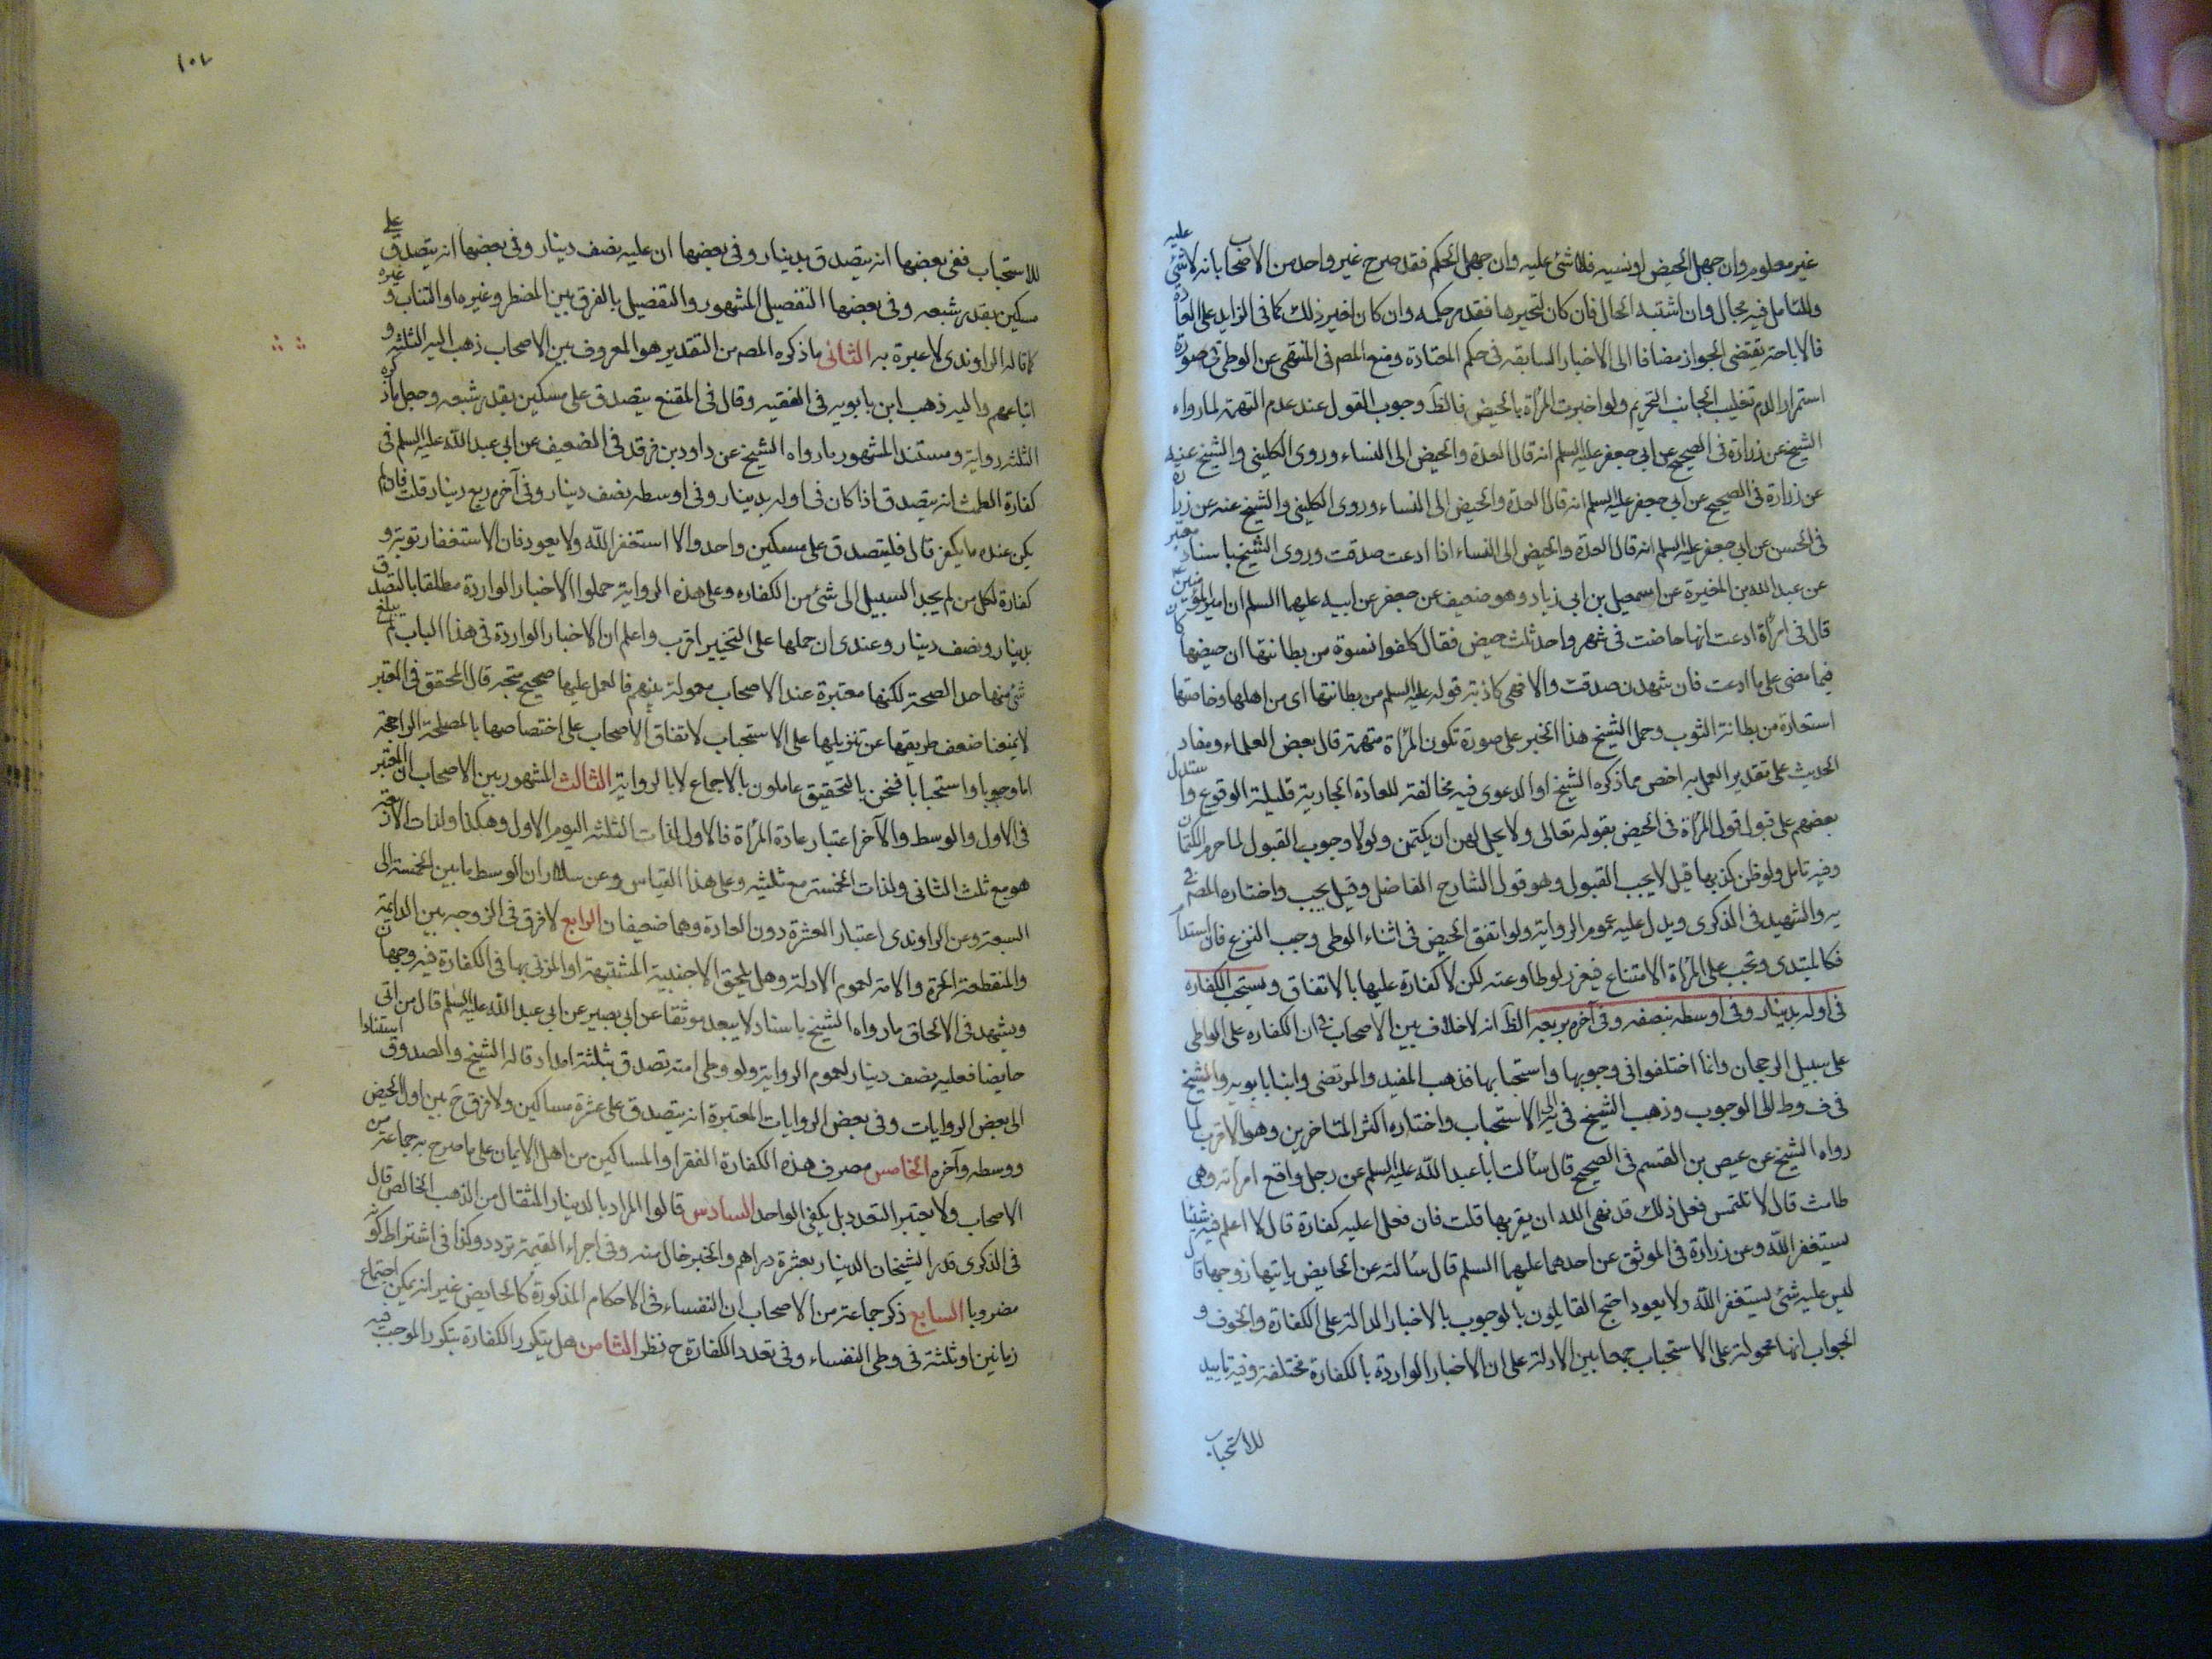 غير معلوم وان جهل الحيض او نسيه فلا شئ عليه وان جهل الحكم فقد صرح غير واحد من الاصحاب بانه لا شئ عليه
وللتامل فيه مجال وان اشتبه الحال فان كان لتحيرها فقد مر حكمه وان كان لغير ذلك كما فى الزايد على العادة
فالاباحة يقتضى الجواز مضافا الى الاخبار السابقه فى حكم المعتادة ومنع المصم فى المنتهى عن الوطى فى صورة
استمرار الدم تغليب الجانب التحريم ولو اخبرت المرأة بالحيض فالظ وجوب القول عند عدم التهمة لما رواه
الشيخ عن زرارة فى الصحيح عن ابى جعفر عليه السلم انه قال العدة والحيض الى النساء وروى الكلينى والشيخ عنه
عن زرارة فى الصحيح عن ابى جعفر عليه السلم انه قال العدة والحيض الى النساء وروى الكلينى والشيخ عنه عن زرارة
فى الحسن عن ابى جعفر عليه السلم انه قال العدة والحيض الى النساء اذا ادعت صدقت وروى الشيخ باسناد معتبر
عن عبد الله بن المغيرة عن اسمعيل بن ابى زياد وهو ضعيف عن جعفر عن ابيه عليهما السلم ان امير المؤمنين ع
قال فى امرأة ادعت انها حاضت فى شهر واحد ثلث حيض فقال كلفوا نسوة من بطانتها ان حيضها كان
فيما مضى على ما ادعت فان شهدن صدقت والا فهى كاذبة قوله عليه السلم من بطانتها اى من اهلها وخاصتها
استعارة من بطانة الثوب وحمل الشيخ هذا الخبر على صورة تكون المرأة متهمة قال بعض العلماء ومفاد
الحديث على تقدير العمل به اخص مما ذكره الشيخ او الدعوى فيه مخالفة للعادة الجارية قليلة الوقوع واستدل
بعضهم على قبول قول المرأة فى الحيض بقوله تعالى ولا يحل لهن ان يكتمن ولولا وجوب القبول لما حرم الكتمان
وفيه تامل ولو ظن كذبها قيل لا يجب القبول وهو قول الشارح الفاضل وقيل يجب واختاره المصم فى
يه والشهيد فى الذكرى ويدل عليه عموم الرواية ولو اتفق الحيض فى اثناء الوطى وجب النزع فان استدام
فكالمبتدى وتجب على المرأة الامتناع فيعزر لو طاوعته لكن لا كفارة عليها بالاتفاق ويستحب الكفاره
فى اوله بدينار وفى اوسطه بنصفه وفى آخره بربعه الظ انه لا خلاف بين الاصحاب فى ان الكفاره على الواطى
على سبيل الرجحان وانما اختلفوا فى وجوبها واستحبابها فذهب المفيد والمرتضى وابنا بابويه والشيخ
فى ف وط الى الوجوب وذهب الشيخ فى يه الى الاستحباب واختاره اكثر المتاخرين وهو الاقرب لما
رواه الشيخ عن عيص بن القسم فى الصحيح قال سألت ابا عبد الله عليه السلم عن رجل واقع امرأته وهى
طامث قال لا تلتمس فعل ذلك قد نهى الله ان يقربها قلت فان فعل اعليه كفارة قال لا اعلم فيه شيئا
يستغفر الله وعن زرارة فى الموثق عن احدهما عليهما السلم قال سألته عن الحايض ياتيها زوجها قال
ليس عليه شئ يستغفر الله ولا يعود احتج القايلون بالوجوب بالاخبار الدالة على الكفارة والخوف و
الجواب انها محمولة على الاستحباب جمعا بين الادلة على ان الاخبار الواردة بالكفارة مختلفة وفيه تاييد
للاستحباب
١٠٧
للاستحباب ففى بعضها انه يتصدق بدينار وفى بعضها ان عليه نصف دينار وفى بعضها انه يتصدق على
مسكين بقدر شبعه وفى بعضها التفصيل المشهور والتفصيل بالفرق بين المضطر وغيره او الشاب وغيره
كما قاله الراوندى لا عبرة به الثانى ما ذكره المصم من التقدير هو المعروف بين الاصحاب ذهب اليه الثلثه و
اتباعهم واليه ذهب ابن بابويه فى الفقيه وقال فى المقنع يتصدق على مسكين بقدر شبعه وجعل ما ذكره
الثلثه رواية ومستند المشهور ما رواه الشيخ عن داود بن فرقد فى الضعيف عن ابى عبد الله عليه السلم فى
كفارة الطمث انه يتصدق اذا كان فى اوله بدينار وفى اوسطه نصف دينار وفى آخره ربع دينار قلت فان لم
يكن عنده ما يكفر قال فليتصدق على مسكين واحد والا استغفر الله ولا يعود فان الاستغفار توبة و
كفارة لكل من لم يجد السبيل الى شئ من الكفاره وعلى هذه الرواية حملوا الاخبار الواردة مطلقا بالتصدق
بدينار ونصف دينار وعندى ان حملها على التخيير اقرب واعلم ان الاخبار الواردة فى هذا الباب لم يبلغ
شئ منها حد الصحة لكنها معتبرة عند الاصحاب معمولة بينهم فالعمل عليها صحيح متجه قال المحقق فى المعتبر
لا يمنعنا ضعف طريقها عن تنزيلها على الاستحباب لاتفاق الاصحاب على اختصاصها بالمصلحة الراجحة
اما وجوبا واستحبابا فنحن بالتحقيق عاملون بالاجماع لا بالرواية الثالث المشهور بين الاصحاب ان المعتبر
فى الاول والوسط والآخر اعتبار عادة المرأة فالاول لذات الثلثه اليوم الاول وهكذا ولذات الاربعة
هو مع ثلث الثانى ولذات الخمسة مع ثلثيه وعلى هذا القياس وعن سلار ان الوسط ما بين الخمسة الى
السبعة وعن الراوندى اعتبار العشرة دون العادة وهما ضعيفان الرابع لا فرق فى الزوجه بين الدايمة
والمنقطعة الحرة والامة لعموم الادلة وهل يلحق الاجنبية المشتبهة او المزنى بها فى الكفارة فيه وجهان
ويشهد فى الالحاق ما رواه الشيخ باسناد لا يبعد موثقا عن ابى بصير عن ابى عبد الله عليه السلم قال من اتى
حايضا فعليه نصف دينار لعموم الرواية ولو وطى امته تصدق بثلثة امداد قاله الشيخ والصدوق استنادا
الى بعض الروايات وفى بعض الروايات المعتبرة انه يتصدق على عشرة مساكين ولا فرق ح بين اول الحيض
ووسطه وآخره الخامس مصرف هذه الكفارة الفقراء والمساكين من اهل الايمان على ما صرح به جماعة من
الاصحاب ولا يعتبر التعدد بل يكفى الواحد السادس قالوا المراد بالدينار المثقال من الذهب الخالص قال
فى الذكرى قدر الشيخان الدينار بعشرة دراهم والخبر خال منه وفى اجراء القيمة تردد وكذا فى اشتراط كونه
مضروبا السابع ذكر جماعة من الاصحاب ان النفساء فى الاحكام المذكورة كالحايض غير انه يمكن اجتماع
زمانين او ثلثة فى وطى النفساء وفى تعدد الكفارة ح نظر الثامن هل يتكرر الكفارة بتكرر الموجب فيه